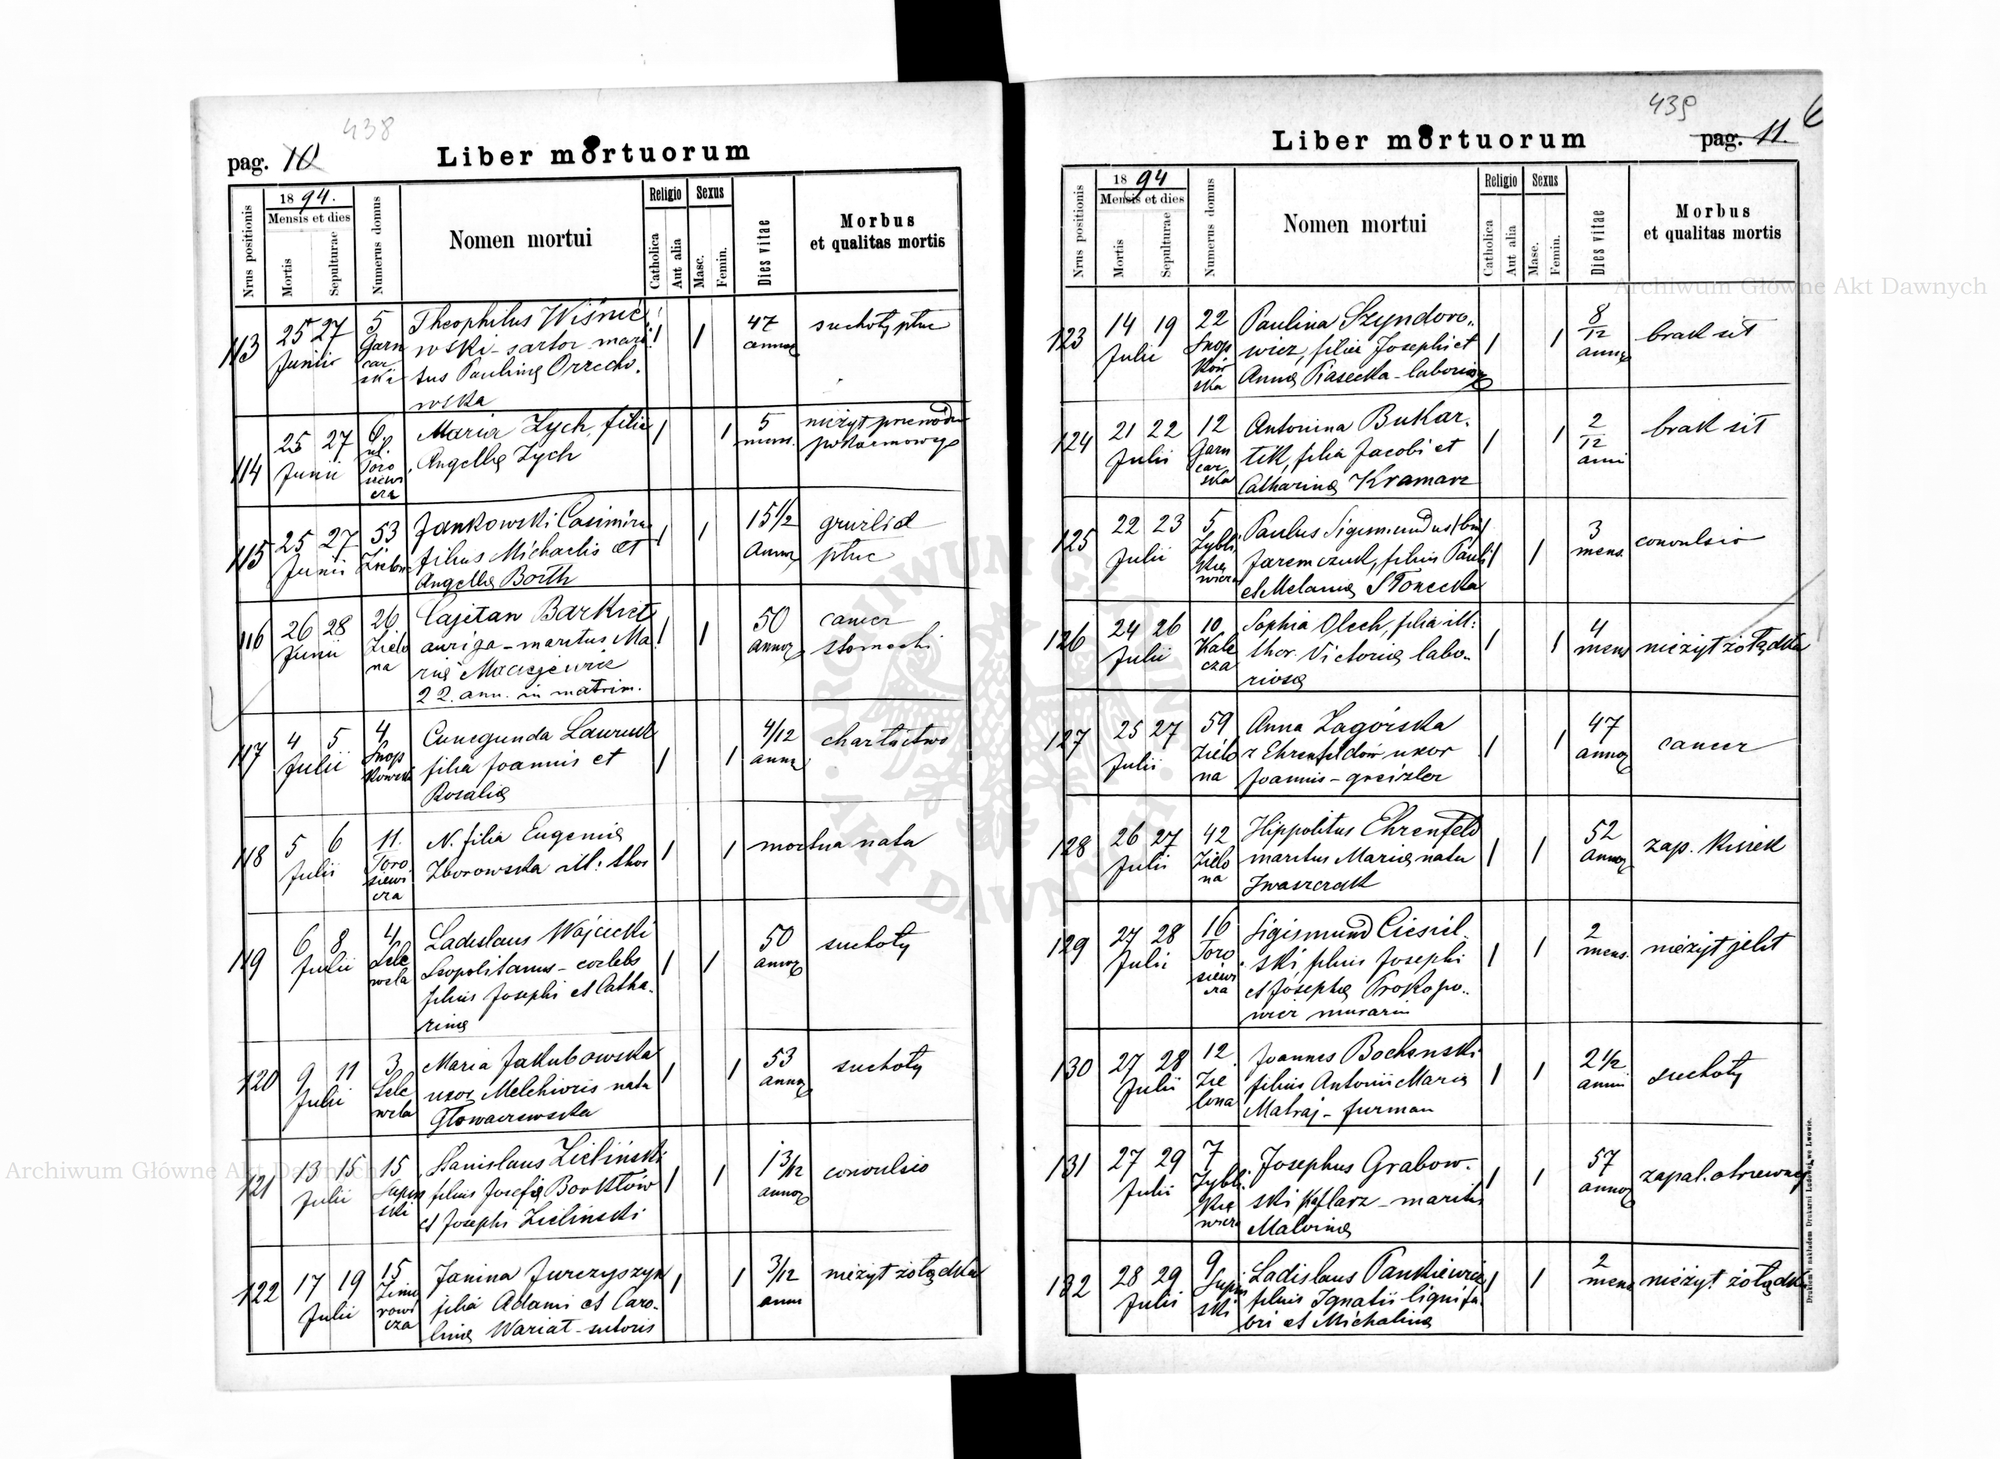 438
pag. 10
Liber mortuorum
Nrus positionis
1894.
Mensis et dies
Mortis
Sepulturae
Numerus domus
Nomen mortui
Religio
Catholica
Aut alia
Sexus
Masc.
Femin.
Dies vitae
Morbus
et qualitas mortis
113
25 27
Junii
5
Garn
car
ski
Theophilus Wiśnie
wski - sartor mari
tus Paulinę Orzecho.
wska
1
1
47
annor
suchoty płuc
114
25 27
Junii
6
ul.
Toro
siewi
cza
Maria Zych, filia
Angellę Zych
1
1
5
mens.
nieżyt przewodu
pokarmowego
115
25 27
Junii
53
Zielona
Jankowski Casimirus
filius Michaelis et
Angellę Borth
1
1
15 1/2
annor
gruźlica
płuc
116
26 28
Junii
26
Zielo
na
Cajetan Barkiet
auriga - maritus Ma
rię Maciejewicz
22. ann. in matrim.
1
1
50
annor
cancer
stomachi
117
4 5
Julii
4
Snop
kowski
Cunegunda
filia Joannis et
Rosalię
1
1
4/12
anni
charłactwo
118
5 6
Julii
11.
Toro
siewi
cza
N. filia Eugenię
Zborowska ill: thor
1
1
mortua nata
119
6 8
Julii
4
Lele
wela
Ladislaus Wójcicki
Leopolitanus - coelebs
filius Josephi et Catha.
rinę
1
1
50
annor
suchoty
120
9 11
Julii
3
Lele
wela
Maria Jakubowska
uxor Melchioris nata
Głowaczewska
1
1
53
annor
suchoty
121
13 15
Julii
15
Supiń
ski
Stanislaus Zieliński
filius Josefię Borkłów
et Josephi Zieliński
1
1
1 3/12
annor
convulsio
122
17 19
Julii
15
Zimo
rowi
cza
Janina Jurczyszyn
filia Adami et Caro.
linę Wariat - sutoris
1
1
3/12
anni
nieżyt żołądka
439
6
Liber mortuorum
pag. 11.
Nrus positionis
1894
Mensis et dies
Mortis
Sepulturae
Numerus domus
Nomen mortui
Religio
Catholica
Aut alia
Sexus
Masc.
Femin.
Dies vitae
Morbus
et qualitas mortis
123
14 19
Julii
22
Snop
ków
ska
Paulina Szyndoro..
wicz, filia Josephi et
Annę Piasecka - laborios
1
1
8
12
anni
brak sił
124
21 22
Julii
12
Garn
car
ska
Antonina Bukar.
tik, filia Jacobi et
Catharinę Kramarz
1
1
2
12
anni
brak sił
125
22 23
Julii
5
Zybli
kie
wicza
Paulus Sigismundus (bin)
Jaremczuk, filius Pauli
et Melanię Słonecka
1
1
3
mens.
convulsio
126
24 26
Julii
10
Kale
cza
Sophia Olech, filia ill:
thor. Victorię labo.
riosę
1
1
4
mens
nieżyt żołądka
127
25 27
Julii
59
Zielo
na
Anna Zagórska
z Ehrenfeldów uxor
Joannis - greizler
1
1
47
annor
cancer
128
26 27
Julii
42
Zielo
na
Hippolitus Ehrenfeld
maritus Marię nata
Iwaszczak
1
1
52
annor
zap. kiszek
129
27 28
Julii
16
Toro
siewi
cza
Sigismund Ciesiel.
ski, filius Josephi
et Josephę Prokopo..
wicz murarii
1
1
2
mens.
nieżyt jelit
130
27 28
Julii
12
Zie
lona
Joannes Bochenski
filius Antonii Marię
Matraj - furman
1
1
2 1/2
anni
suchoty
131
27 29
Julii
7
Zybli
kie
wicza
Josephus Grabow.
ski kaflarz - maritus
Malvinę
1
1
57
annor
zapal. otrzewnej
132
28 29
Julii
9
Supiń
ski
Ladislaus Pankiewicz
filius Ignatii lignifa.
bri et Michalinę
1
1
2
mens
nieżyt żołądka
Drukiem i nakładem Drukarni Ludowej we Lwowie.
Archiwum Główne Akt Dawnych
Archiwum Główne Akt Dawnych
ARCHIWUM GŁÓWNE AKT DAWNYCH